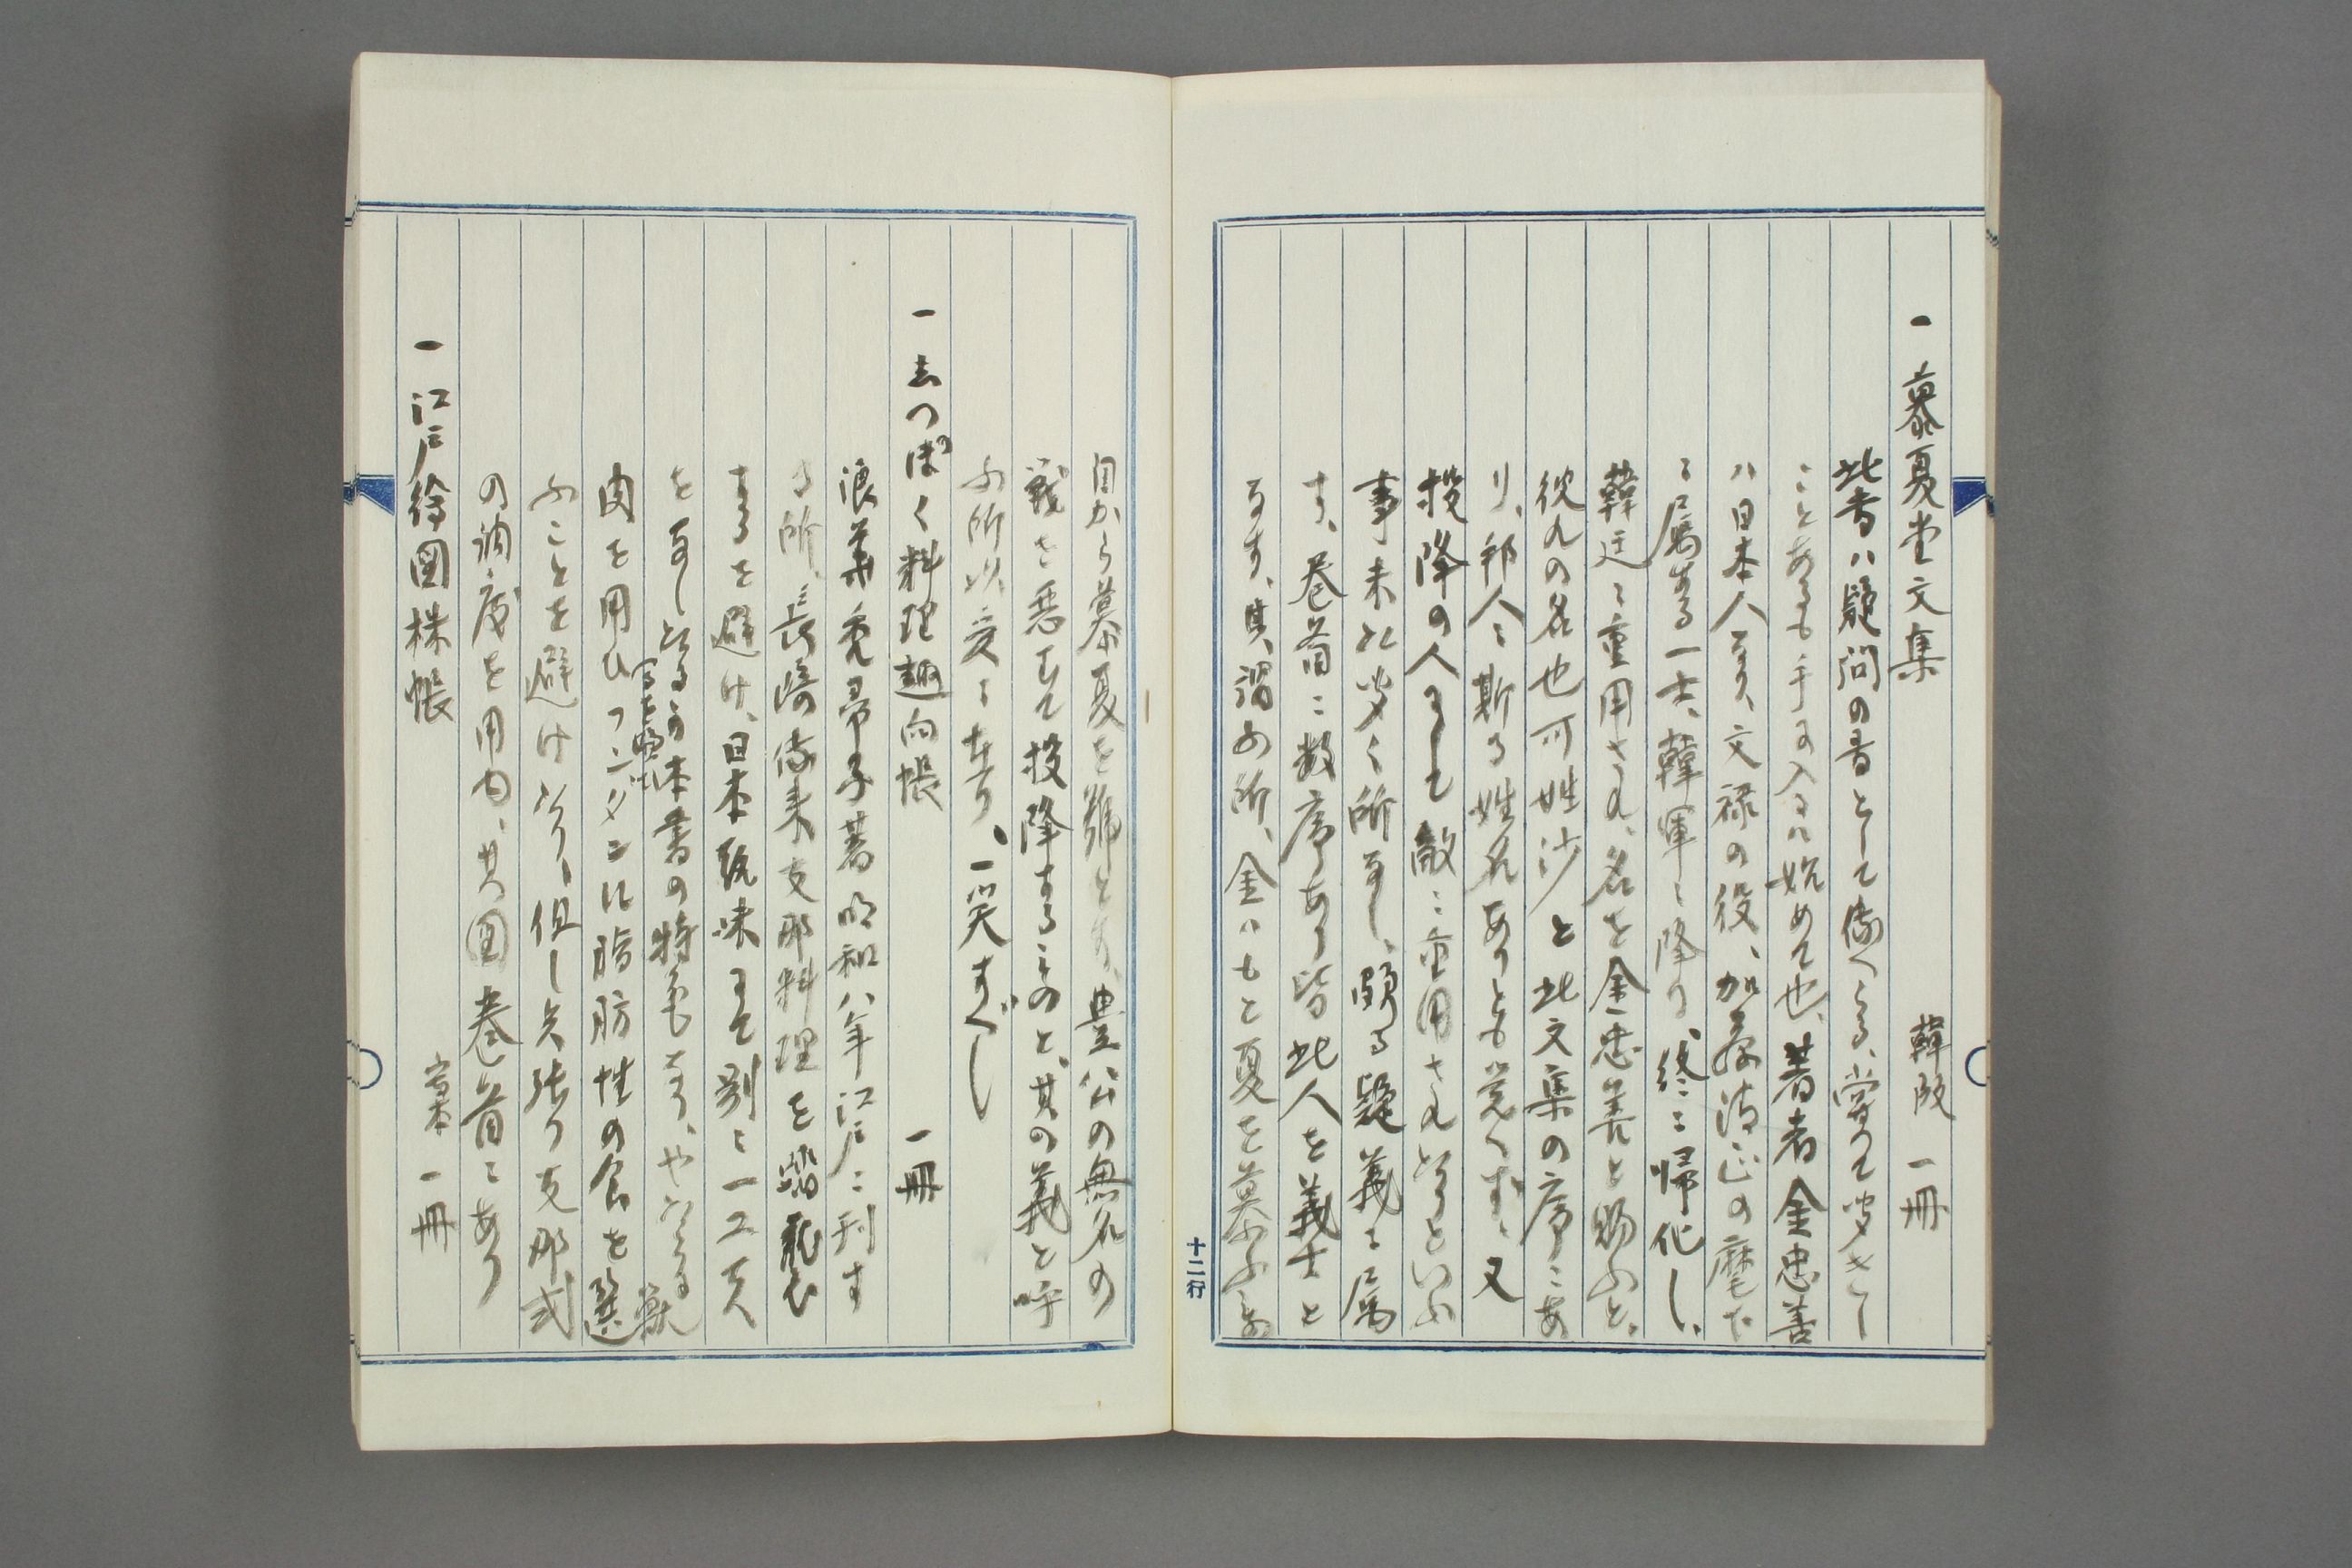 一 慕夏堂文集 韓版 一冊
此書ハ疑問の書として伝へらる、嘗つて聞きし
ことあるも手に入るハ始めて也、著者金忠善
ハ日本人なり、文禄の役、加藤清正の麾下
ニ属する一士、韓軍ニ降り、終ニ帰化し、
韓廷ニ重用され、名を金忠善と賜ふと、
彼れの名也可姓沙と此文集の序ニあ
り、邦人ニ斯る姓名ありとも覚へず、又
投降の人にして敵ニ重用されたりといふ
事未だ聞く所なし、頗る疑義ニ属
す、巻首ニ数序あり皆此人を義士と
なす、其謂ふ所、金ハもと夏を慕ふ
自から慕夏を号とす、豊公の無名の
戦を悪むで投降するものと、其の義と呼
ふ所以爰ニ在り、一笑すべし
一 志つぽく料理趣向帳 一冊
浪華禿帚子著明和八年江戸ニ刊す
る所、長崎伝来支那料理を踏襲
するを避け、日本趣味にて別ニ一工夫
を為し たる 本書の特色なり、やゝもすれば獣
肉を用ひ フンダンに脂肪性の食を選
ふことを避けたり、但し矢張り支那式
の調度を用ゆ、其図巻首ニあり
一 江戸絵図株帳 写本 一冊
十二行